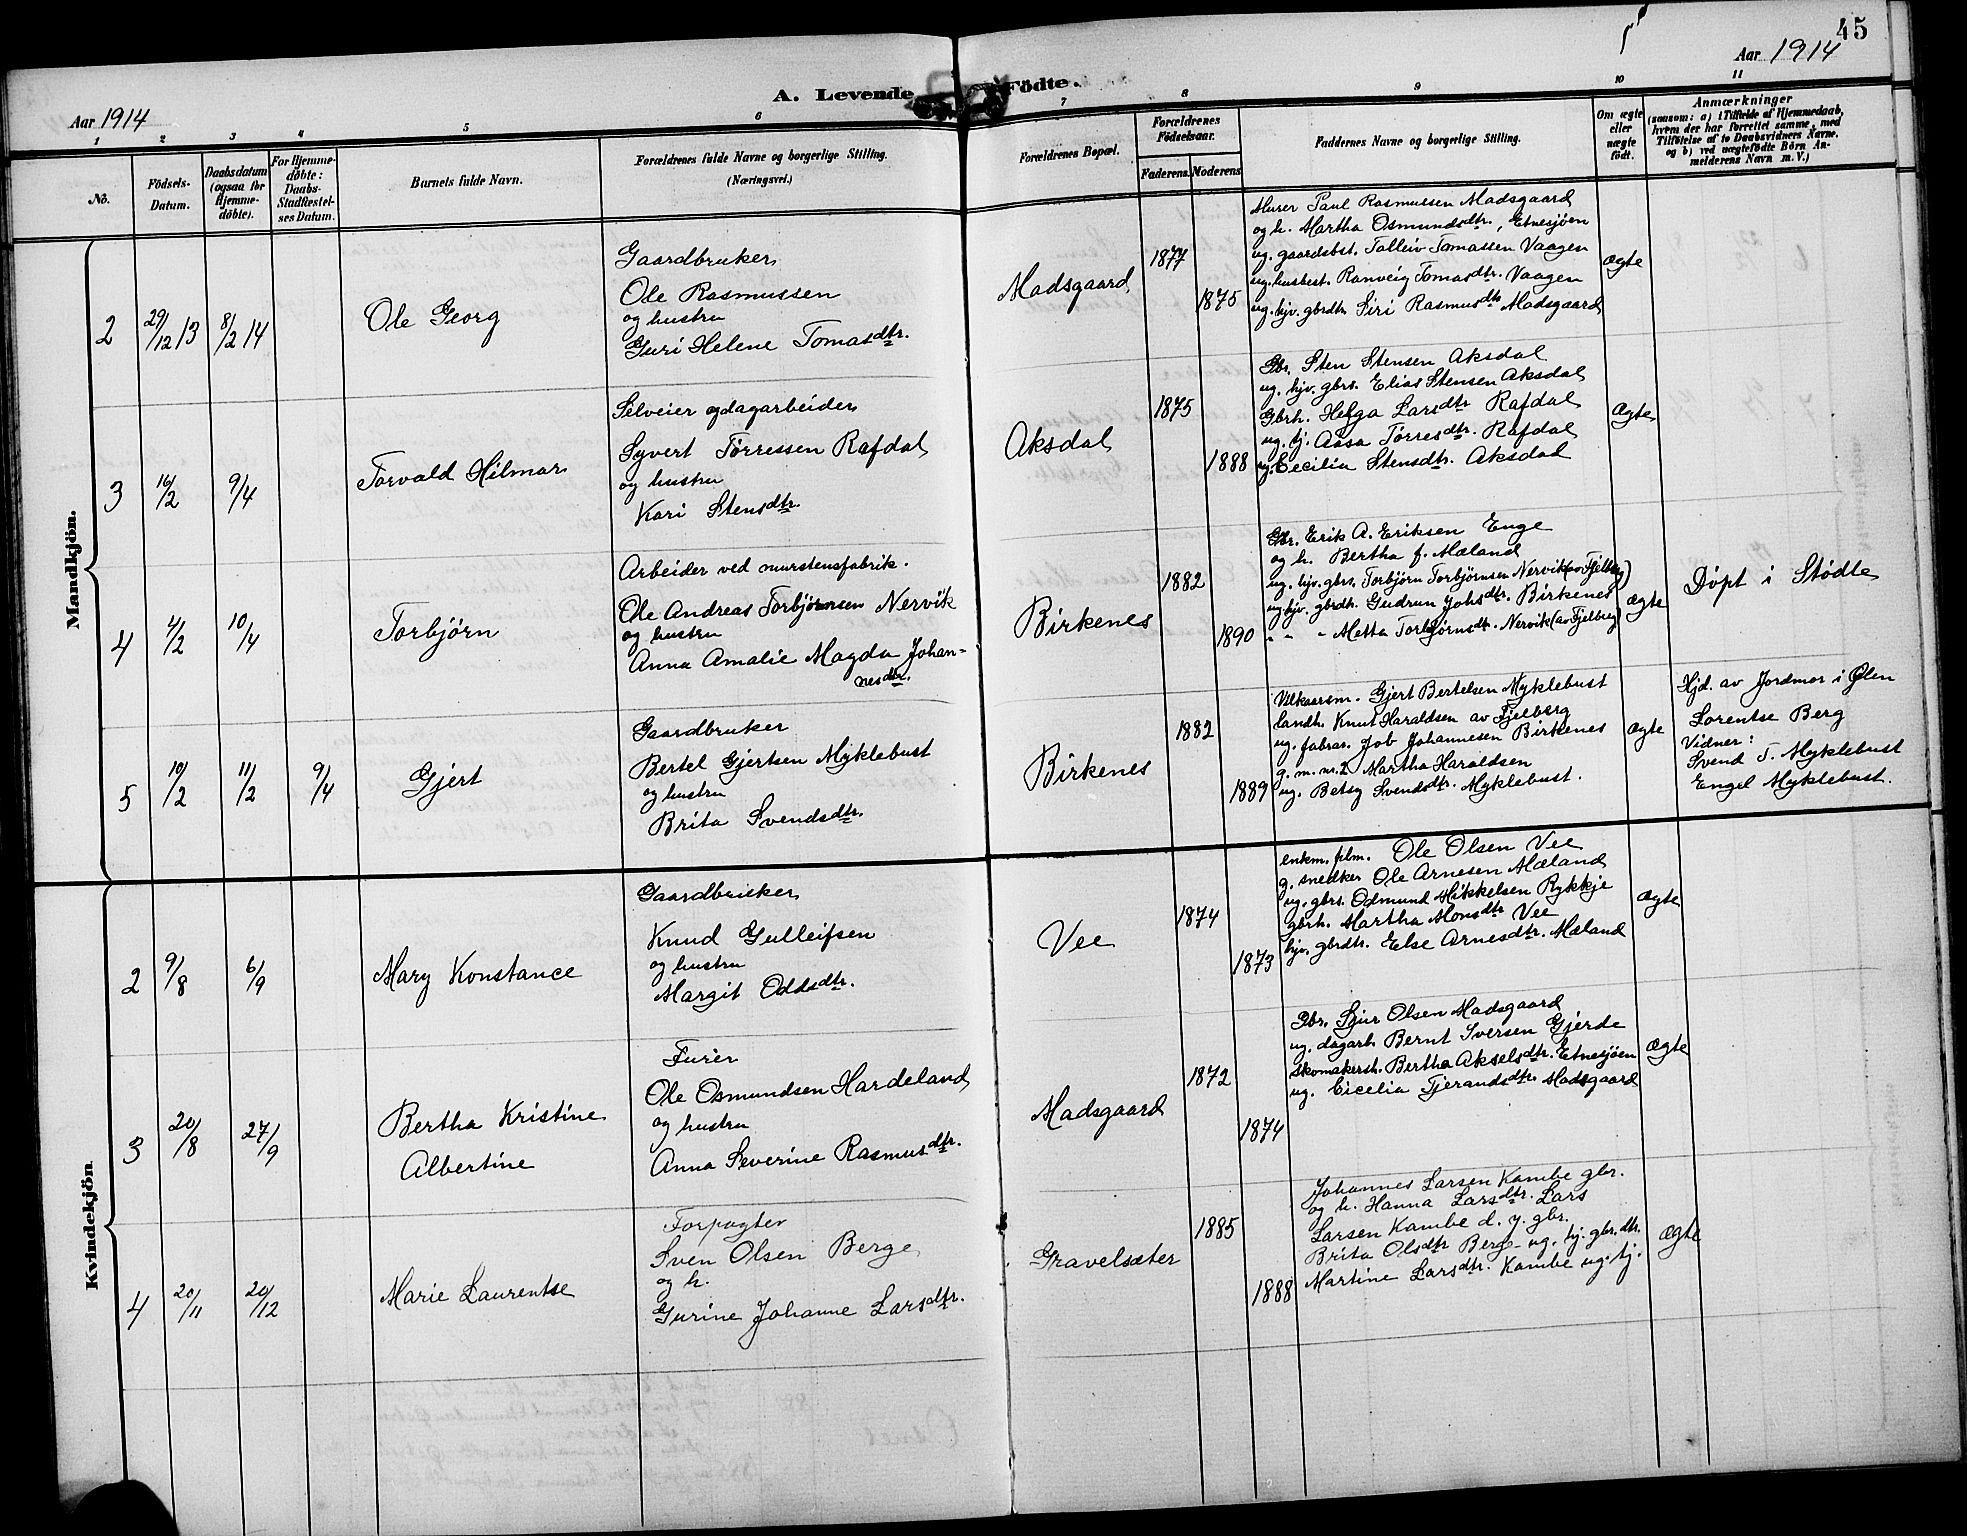 45
Aar 1914
A. Levende Födte.
Aar 1914
1 2 3 4 5 6 7 8 9 10 11
No.
Födsels-
Datum.
Daabsdatum
(ogsaa for
Hjemme-
döbte).
For Hjemme-
döbte:
Daabs-
Stadfæstel-
ses Datum.
Barnets fulde Navn.
Forældrenes fulde Navne og borgerlige Stilling.
(Næringsvei.)
Forældrenes Bopæl.
Forældrenes
Födselsaar.
Faderens. Moderens.
Faddernes Navne og borgerlige Stilling.
Om ægte
eller
uægte
födt.
Anmærkninger
(saasom: a) i Tilfælde af Hjemmedaab,
hvem der har forrettet samme, med
Tilföielse af to Daabsvidners Navne,
og b) ved uægtefödte Börn An-
melderens Navn m. V.)
Mandkjön.
2
29/12 13
8/2 14
Ole Georg
Gaardbruker
Ole Rasmussen
og hustru
Guri Helene Tomasdtr.
Madsgaard
1877
1875
Murer Paul Rasmussen Madsgaard
og h. Martha Osmundsdtr., Etnesjøen
ug. gaardsbst. Tolleiv Tomassen Vaagen
ug. husbest. Ranveig Tomasdtr. Vaagen
ug. hjv. gbrdtr. Siri Rasmusdtr Madsgaard
Ægte
3
16/2
9/4
Torvald Hilmar
Selveier og dagarbeider
Syvert Tørressen Rafdal
og hustru
Kari Stensdtr.
Aksdal
1875
1888
Gbr. Sten Stensen Aksdal
ug. hjv. gbrs. Elias Stensen Aksdal
Gbrh. Helga Larsdtr Rafdal
ug. tj. Aasa Tørresdtr. Rafdal
ug. Cecilia Stensdtr. Aksdal
Ægte
4
4/2
10/4
Torbjørn
Arbeider ved murstensfabrik.
Ole Andreas Torbjørnsen Nervik
og hustru
Anna Amalie Magda Johan-
nesdtr.
Birkenes
1882
1890
Gbr. Erik A. Eriksen Enge
og h. Bertha f. Mæland
ug. hjv. gbrs. Torbjørn Torbjørnsen Nervik (av Fjelberg)
ug. hjv. gbrdtr. Gudrun Johsdtr. Birkenes
" " " Metta Torbjørnsdtr. Nervik (av Fjelberg)
Ægte
Døpt i Stødle
5
10/2
11/2
9/4
Gjert
Gaardbruker
Bertel Gjertsen Myklebust
og hustru
Brita Svendsdtr.
Birkenes
1882
1889
Vilkaarsm. Gjert Bertelsen Myklebust
landh. Knut Haraldsen av Fjelberg
ug. fabrar. Job Johannesen Birkenes
g. m. nr. 2 Martha Haraldsen
ug. Betsy Svendsdtr. Myklebust.
Ægte
Hjd. av Jordmor i Ølen
Lorentse Berg
Vidner:
Svend T. Myklebust
Engel Myklebust.
Kvindekjön
2
9/8
6/9
Mary Konstance
Gaardbruker
Knud Gulleifsen
og hustru
Margit Oddsdtr.
Vee
1874
1873
enkm. fblm. Ole Olsen Vee
g. snedker Ole Arnesen Mæland
ug. gbrs. Odmund Mikkelsen Rykkje
gbrh. Martha Monsdtr Vee
hjv. gbrdtr. Else Arnesdtr. Mæland
Ægte
3
20/8
27/9
Bertha Kristine
Albertine
Furér
Ole Osmundsen Hardeland
og hustru
Anna Severine Rasmusdtr.
Madsgaard
1872
1874
Gbr. Sjur Olsen Madsgaard
ug. dagarb. Bernt Iversen Gjerde
Skomakersh. Bertha Akselsdtr. Etnesjøen
ug. Cicelia Tjerandsdtr. Madsgaard
Ægte
4
20/11
20/12
Marie Laurentse
Forpagter
Sven Olsen Berge
og h.
Gurine Johanne Larsdtr.
Gravelsæter
1885
1888
Johannes Larsen Kambe gbr.
og h. Hanna Larsdtr. Lars
Larsen Kambe d. y. gbr.
Brita Olsdtr Berge ug. hj. gbr.dtr.
Martine Larsdtr. Kambe ug. tj.
Ægte